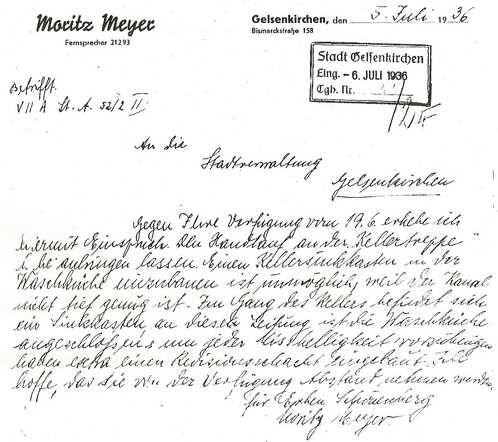 Moritz Meyer
Fernsprecher 21293
Gelsenkirchen, den 5. Juli 1936
Bismarckstraße 158
Stadt Gelsenkirchen
Eing. - 6. JULI 1936
Cgb. Nr.
Betrifft.
VII A St. A. 52/2 II
An die
Stadtverwaltung
Gelsenkirchen
Gegen Ihre Verfügung vom 19.6. erhebe ich
hiermit Einspruch. Den Handlauf an der Kellertreppe
anbringen lassen. Einen Kellersinkkasten in der
Waschküche einzubauen ist unmöglich, weil der Kanal
nicht tief genug ist. Im Gang des Kellers befindet sich
ein Sinkkasten an diesen Leitung ist die Waschküche
angeschlossen um jeder Misshelligkeit vorzubeugen
haben extra einen Revisionsschacht eingebaut. Ich
hoffe, das Sie von der Verfügung Abstand nehmen werden.
für Erben Schönenberg
Moritz Meyer.